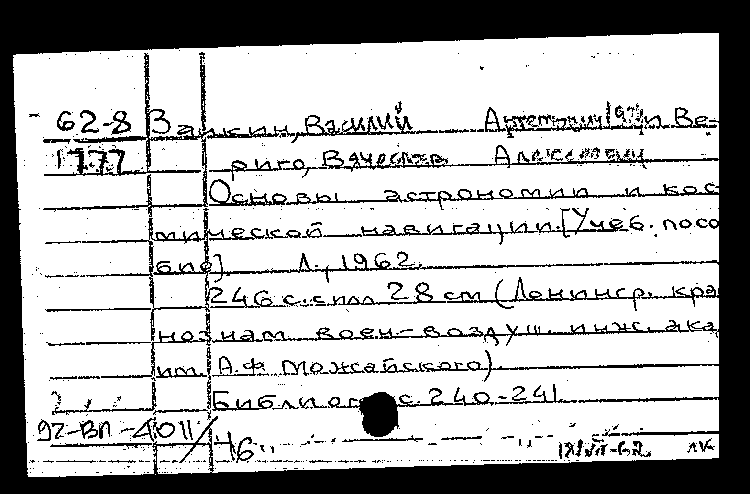 62-8 Заикин, Василий Артемьевич и Ве-
1777 риго, Вячеслав Алексеевич
Основы астрономии и кос
мической навигации. [Учеб. посо
бие] Л., 1962.
246 с. с илл 28 см (Ленингр. кра
нознам воен-воздуш. инж. ака
им. А.Ф Можайского).
Библиогр с. 240-241
92-ВП-4011/46